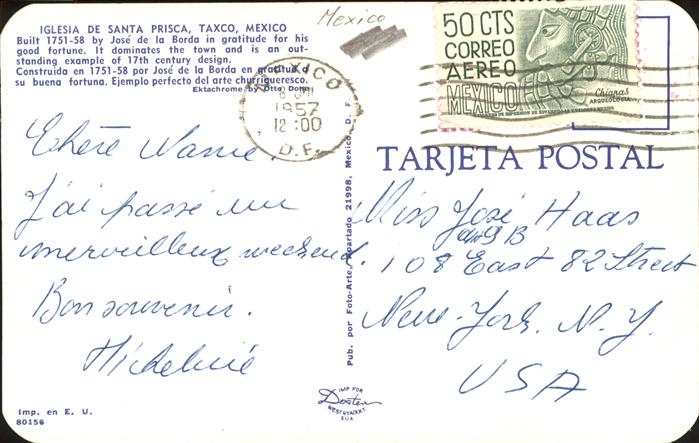 IGLESIA DE SANTA PRISCA, TAXCO, MEXICO
Built 1751-58 by José de la Borda in gratitude for his
good fortune. It dominates the town and is an out-
standing example of 17th century design.
Construida en 1751-58 por José de la Borda en gratitud a
su buena fortuna. Ejemplo perfecto del arte churrigueresco.
Ektachrome by Otto Done
Mexico
MEXICO
8 JUL
1957
12:00
D.F.
50 CTS
CORREO
AEREO
MEXICO
Chiapas
ARQUEOLOGIA
TARJETA POSTAL
Chère
J'ai passé un
merveilleux weekend.
Bon souvenir.
Micheline
Miss José Haas
apt 9 B
108 East 82 Street
New-York. N.Y.
USA
Pub. por Foto-Arte, Apartado 21998, Mexico, D. F.
IMP POR
Dexter
WEST NYACK N.Y.
EUA
Imp. en E. U.
80156